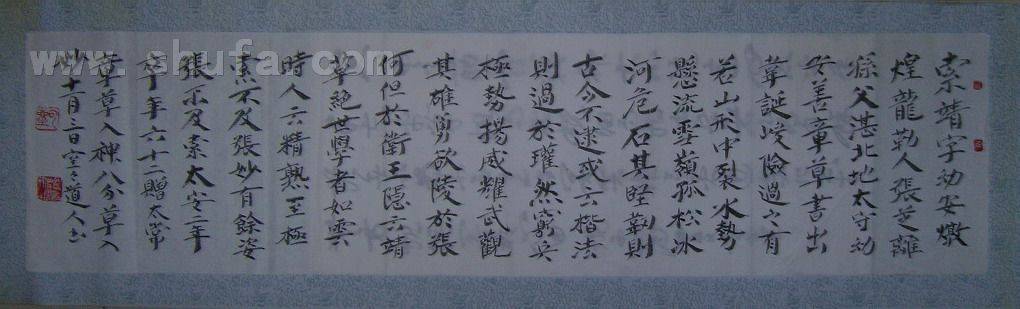 索靖字幼安燉
煌龍勒人張芝離
孫父湛北地太守幼
安善章草書出
韋誕峻險過之有
若山形中裂水勢
懸流雪嶺孤松冰
河危石其堅勁則
古今不逮或云楷法
則過於瓘然窮兵
極勢揚威耀武觀
其雄勇欲陵於張
何但於衛王隱云靖
草絕世學者如雲
時人云精熟至極
索不及張妙有餘姿
張不及索太安二年
卒年六十一贈太常
章草入神八分草入
妙十月二日空々道人书
www.shufa.com